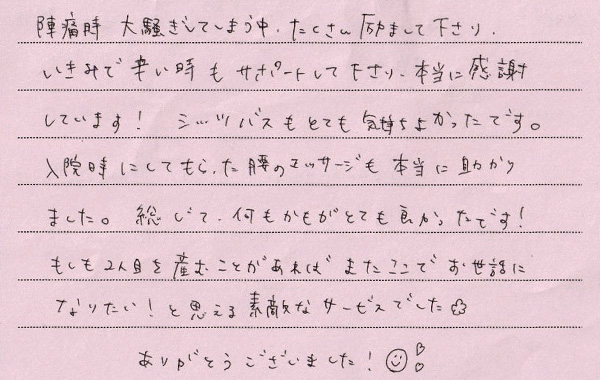 陣痛時 大騒ぎしてしまう中、たくさん励まして下さり、
いきみで辛い時もサポートして下さり、本当に感謝
しています! シッツバスもとても気持ちよかったです。
入院時にしてもらった腰のマッサージも本当に助かり
ました。総じて、何もかもがとても良かったです!
もしも2人目を産むことがあればまたここでお世話に
なりたい!と思える素敵なサービスでした✿
ありがとうございました!☺♡♡